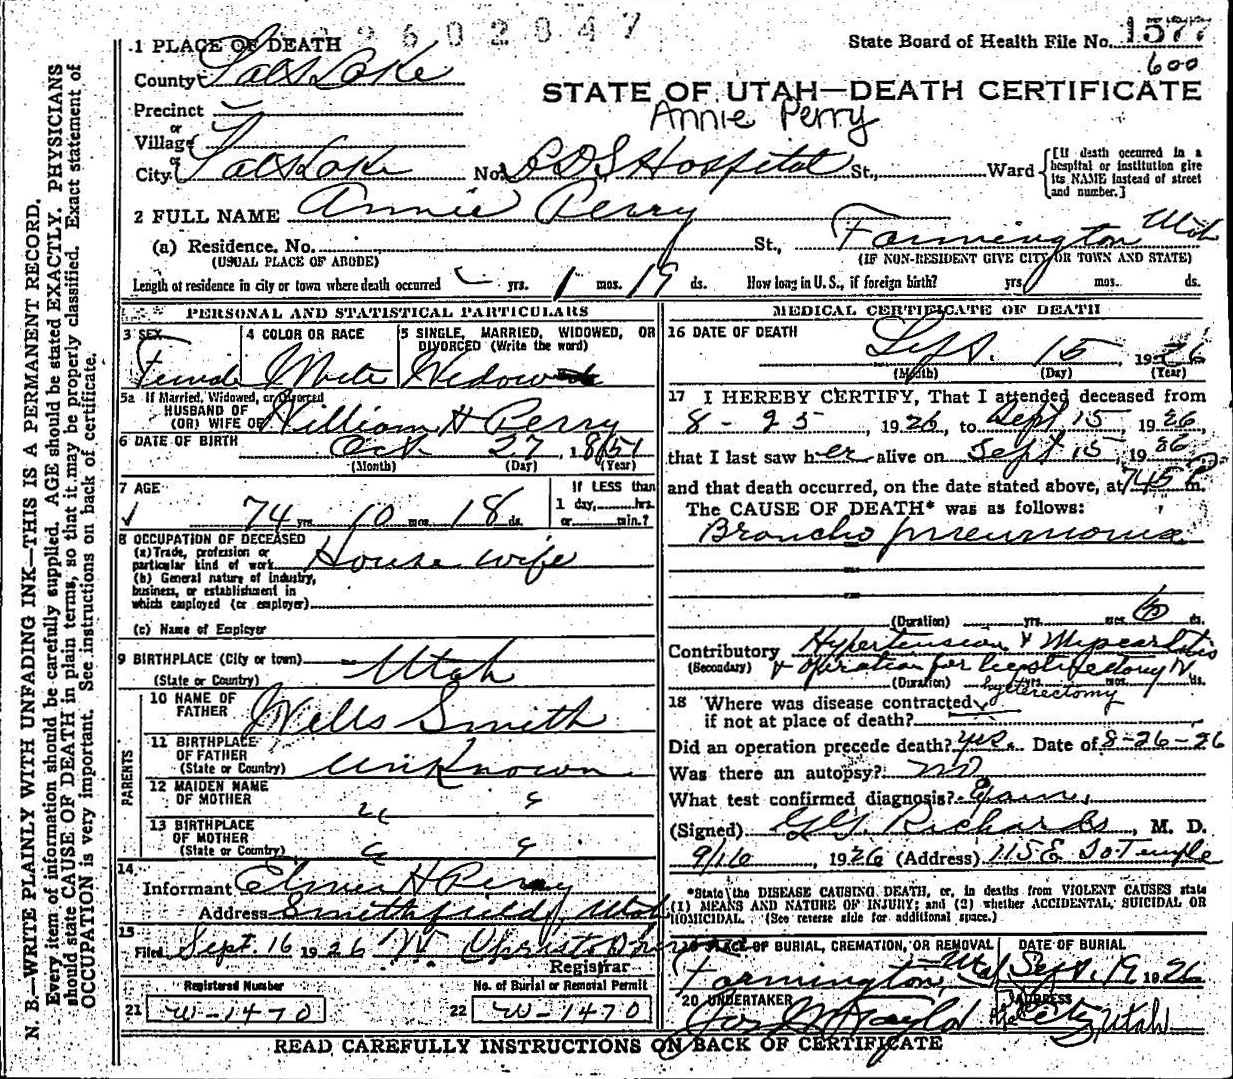 2602847
State Board of Health File No. 1577
600
1 PLACE OF DEATH
County Salt Lake
STATE OF UTAH—DEATH CERTIFICATE
Precinct
Annie Perry
or
Village
or
City Salt Lake No. LDS Hospital St., Ward [If death occurred in a hospital or institution give its NAME instead of street and number.]
2 FULL NAME Annie Perry
(a) Residence. No. St., Farmington Utah
(USUAL PLACE OF ABODE) (IF NON-RESIDENT GIVE CITY OR TOWN AND STATE)
Length of residence in city or town where death occurred yrs. 1 mos. 19 ds. How long in U. S., if foreign birth? yrs. mos. ds.
PERSONAL AND STATISTICAL PARTICULARS
3 SEX 4 COLOR OR RACE 5 SINGLE, MARRIED, WIDOWED, OR DIVORCED (Write the word)
Female White Widow
5a If Married, Widowed, or Divorced
HUSBAND OF
(OR) WIFE OF William H Perry
6 DATE OF BIRTH Oct. 27, 1851
(Month) (Day) (Year)
7 AGE If LESS than
1 day, hrs.
74 yrs. 10 mos. 18 ds. or min.?
8 OCCUPATION OF DECEASED
(a) Trade, profession or
particular kind of work House wife
(b) General nature of industry,
business, or establishment in
which employed (or employer)
(c) Name of Employer
9 BIRTHPLACE (City or town)
(State or Country) Utah
PARENTS
10 NAME OF
FATHER Wells Smith
11 BIRTHPLACE
OF FATHER
(State or Country) Unknown
12 MAIDEN NAME
OF MOTHER "
13 BIRTHPLACE
OF MOTHER
(State or Country) "
14
Informant Elmer H Perry
Address Smithfield, Utah
15
Filed Sept. 16 1926 W.
Registrar
Registered Number No. of Burial or Removal Permit
21 W-1470 22 W-1470
MEDICAL CERTIFICATE OF DEATH
16 DATE OF DEATH Sept. 15 1926
(Month) (Day) (Year)
17 I HEREBY CERTIFY, That I attended deceased from
8-25, 1926, to Sept 15, 1926,
that I last saw her alive on Sept 15, 1926
and that death occurred, on the date stated above, at 745 P m.
The CAUSE OF DEATH* was as follows:
Broncho pneumonia
(Duration) yrs. mos. 6 ds.
Contributory Hypertension & Myocarditis
(Secondary) & operation for
(Duration) yrs. mos. ds.
hysterectomy
18 Where was disease contracted
if not at place of death?
Did an operation precede death? yes Date of 8-26-26
Was there an autopsy? no
What test confirmed diagnosis? Exam.
(Signed) G.G. Richards, M. D.
9/16, 1926 (Address) 115 E So Temple
*State the DISEASE CAUSING DEATH, or, in deaths from VIOLENT CAUSES state
(1) MEANS AND NATURE OF INJURY; and (2) whether ACCIDENTAL, SUICIDAL OR
HOMICIDAL. (See reverse side for additional space.)
19 PLACE OF BURIAL, CREMATION, OR REMOVAL DATE OF BURIAL
Farmington, Utah Sept. 19 1926
20 UNDERTAKER ADDRESS
Jos Wm Taylor City, Utah
READ CAREFULLY INSTRUCTIONS ON BACK OF CERTIFICATE
N. B.—WRITE PLAINLY WITH UNFADING INK—THIS IS A PERMANENT RECORD.
Every item of information should be carefully supplied. AGE should be stated EXACTLY. PHYSICIANS
should state CAUSE OF DEATH in plain terms, so that it may be properly classified. Exact statement of
OCCUPATION is very important. See instructions on back of certificate.